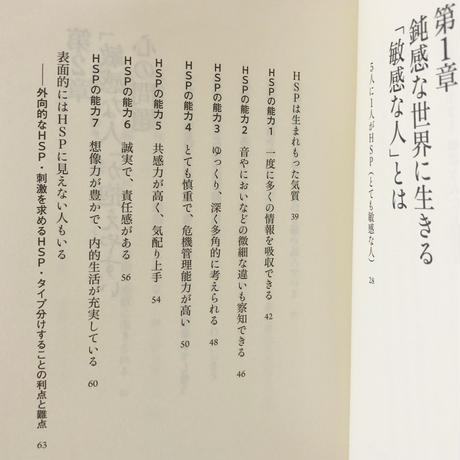 第1章
鈍感な世界に生きる
「敏感な人」とは
5人に1人がHSP(とても敏感な人) 28
HSPは生まれもった気質 39
HSPの能力1 一度に多くの情報を吸収できる 42
HSPの能力2 音やにおいなどの微細な違いも察知できる 46
HSPの能力3 ゆっくり、深く多角的に考えられる 48
HSPの能力4 とても慎重で、危機管理能力が高い 50
HSPの能力5 共感力が高く、気配り上手 54
HSPの能力6 誠実で、責任感がある 56
HSPの能力7 想像力が豊かで、内的生活が充実している 60
表面的にはHSPに見えない人もいる
——外向的なHSP・刺激を求めるHSP・タイプ分けすることの利点と難点 63